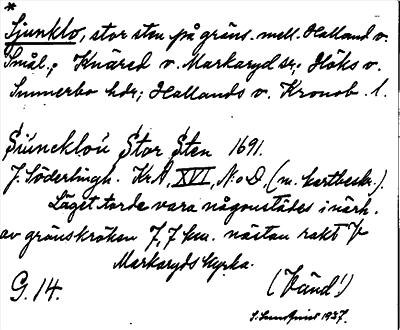 *
Sjunklo, stor sten på gräns. mell. Halland o.
Smål.; Knäred o. Markaryd sr; Höks o.
Sunnerbo hdr; Hallands o. Kronob. l.
Siuneklou Stor Sten 1691.
J. Söderlingh. KrA, XVI, N:o D, (m. kartbeskr.).
Läget torde vara någonstädes i närh.
av gränskröken 7,7 km. nästan rakt V
Markaryds kyrka.
G. 14.
(Vänd!)
1937.